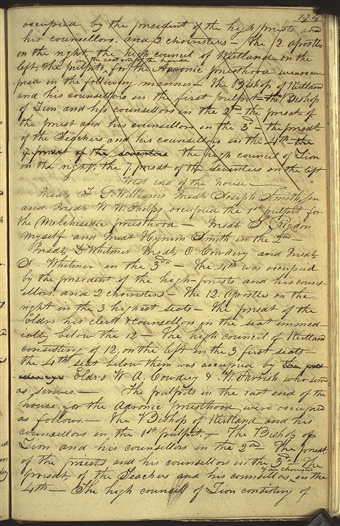 174
occupied by the president of the high priests and
his counsellors, and 2 choiristers — the 12 apostles
on the right, the high council of Kirtland on the
left, the pulpits for the Aaronic priesthood were occu
pied in the following manner — The Bishop of Kirtland
and his counsellors in the first pulpit — the Bishop
of Zion and his counsellors in the 2nd — the presdt. of
the priests and his counsellors in the 3d — the presdt
of the Teachers and his counsellors in the 4th — the
the high council of Zion
on the right, the 7 presdt of the Seventies on the left
West end of the house
Presdt. F. G. Williams Presdt. Joseph Smith, sen
and Presdt. W. W. Phelps occupied the 1st pulpit for
the Melchisedec priesthood — Presdt. S. Rigdon
myself and Presdt Hyrum Smith in the 2nd
Presdt. D. Whitmer Presdt. O. Cowdery and Presdt.
J. Whitmer in the 3d — The 4th was occupied
by the president of the high-priests and his couns
ellors, and 2 choiristers — the 12 Apostles on the
right in the 3 highest seats — the presdt of the
Elders his clerk & counsellors in the seat immed
iatly below the 12 — The high council of Kirtland
consisting of 12, on the left in the 3 first seats —
the 4th seat below them was occupied by
Elders W. A. Cowdery & W. Parrish who served
as scribes. — The pulpits in the east end of the
house for the Aaronic priesthood were occupied
as follows. — The Bishop of Kirtland and his
counsellors in the 1st pulpit. — The Bishop of
Zion and his counsellors in the 2nd — The presdt.
of the priests and his counsellors in the 3d — the
presdt. of the Teachers and his counsellors in the
4th — The high council of Zion consisting of